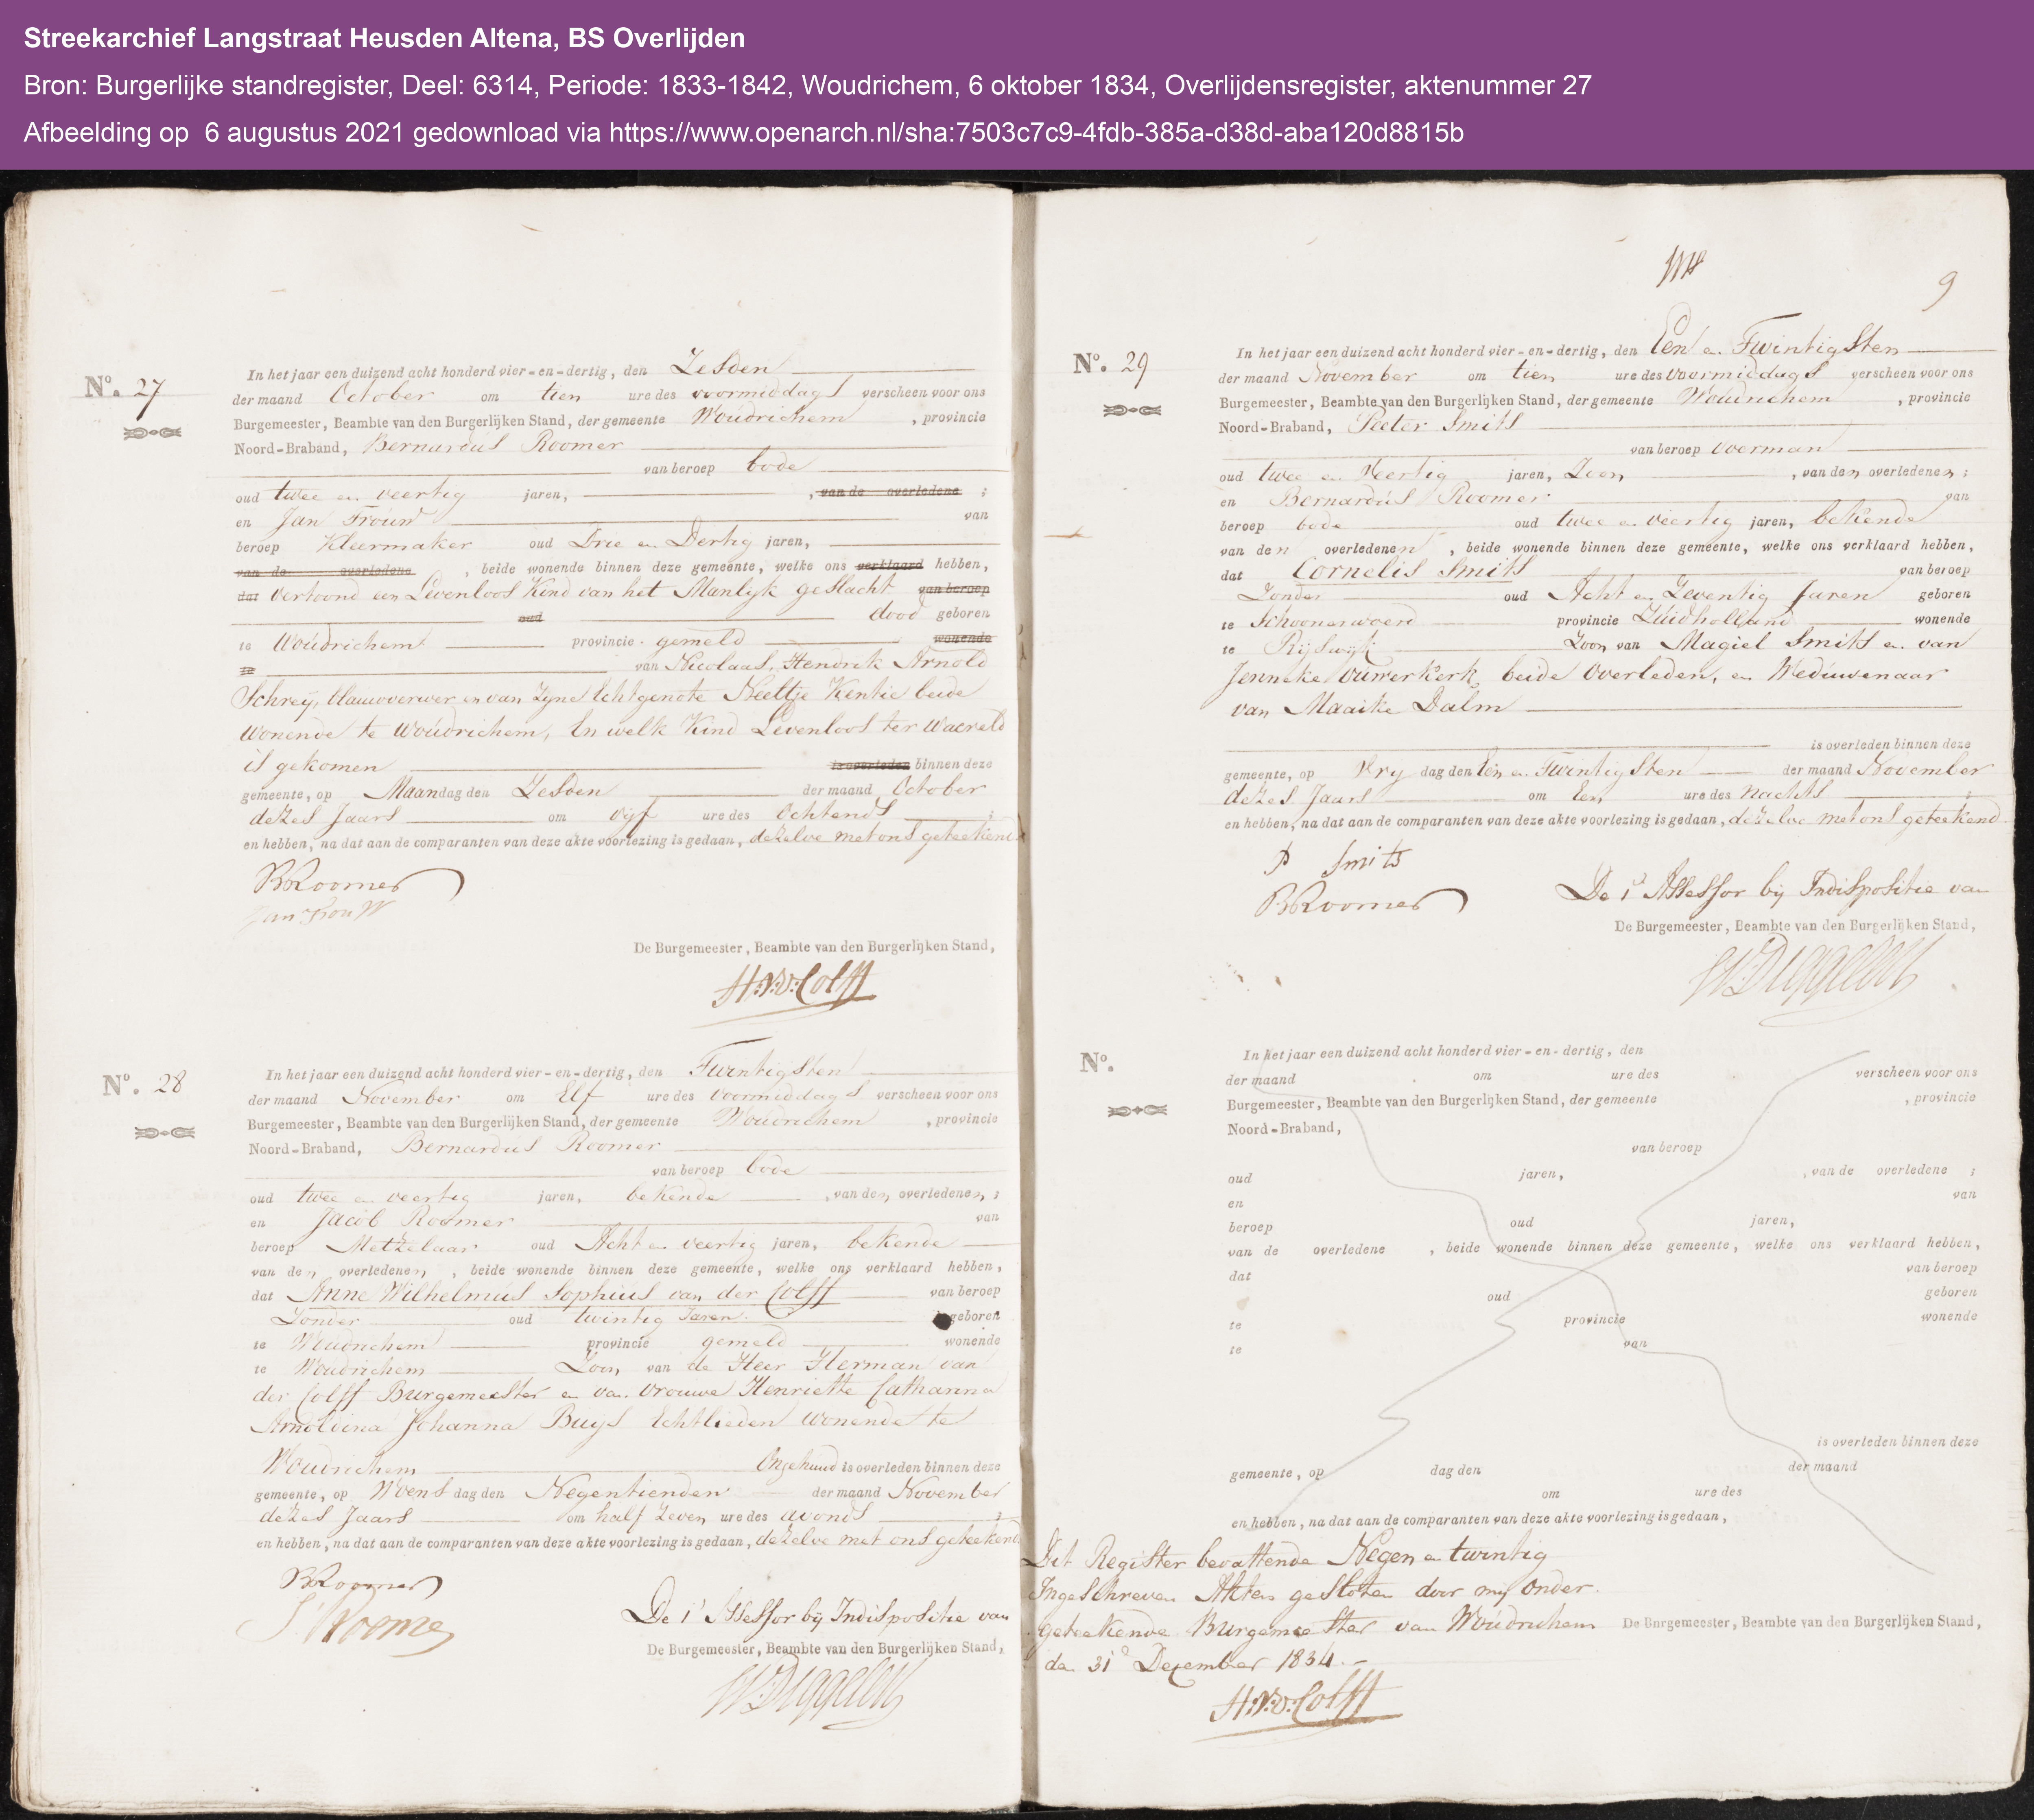 Streekarchief Langstraat Heusden Altena, BS Overlijden
Bron: Burgerlijke standregister, Deel: 6314, Periode: 1833-1842, Woudrichem, 6 oktober 1834, Overlijdensregister, aktenummer 27
Afbeelding op  6 augustus 2021 gedownload via https://www.openarch.nl/sha:7503c7c9-4fdb-385a-d38d-aba120d8815b
No. 27
In het jaar een duizend acht honderd vier-en-dertig, den Zesden
der maand October om tien ure des voormiddags verscheen voor ons
Burgemeester, Beambte van den Burgerlijken Stand, der gemeente Woúdrichem, provincie
Noord-Braband, Bernardús Roomer
van beroep bode
oud twee en veertig jaren, , van de overledene ;
en Jan Troúw van
beroep Kleermaker oud Drie en Dertig jaren,
van de overledene , beide wonende binnen deze gemeente, welke ons verklaard hebben,
dat vertoond een Levenloos Kind van het Manlijk geslacht van beroep
oud dood geboren
te Woúdrichem provincie gemeld wonende
te van Nicolaas Hendrik Arnold
Schreij, blauwverwer en van Zyne Echtgenote Neeltje Kentie beide
wonende te Woúdrichem, En welk Kind Levenloos ter Waereld
is gekomen is overleden binnen deze
gemeente, op Maandag den Zesden der maand October
dezes Jaars om vyf ure des Ochtends ;
en hebben, na dat aan de comparanten van deze akte voorlezing is gedaan, dezelve met ons geteekend
BRoomer
Jan Trouw
De Burgemeester, Beambte van den Burgerlijken Stand,
H:N:v:Colff
No. 28
In het jaar een duizend acht honderd vier-en-dertig, den Twintigsten
der maand November om Elf ure des voormiddags verscheen voor ons
Burgemeester, Beambte van den Burgerlijken Stand, der gemeente Woúdrichem, provincie
Noord-Braband, Bernardús Roomer
van beroep bode
oud twee en veertig jaren, bekende , van den overledenen ;
en Jacob Roomer van
beroep Metzelaar oud Acht en veertig jaren, bekende
van den overledenen , beide wonende binnen deze gemeente, welke ons verklaard hebben,
dat Anne Wilhelmús Sophiús van der Colff van beroep
Zonder oud twintig Jaren geboren
te Woúdrichem provincie gemeld wonende
te Woudrichem Zoon van de Heer Herman van
der Colff Burgemeester en van vrouwe Henriette Catharina
Arnoldina Johanna Buijs Echtlieden wonende te
Woudrichem Ongehuwd is overleden binnen deze
gemeente, op Woens dag den Negentienden der maand November
dezes Jaars om half Zeven ure des avonds ;
en hebben, na dat aan de comparanten van deze akte voorlezing is gedaan, dezelve met ons geteekend
BRoomer
J Roomer
De 1e Assessor bij Indispositie van
De Burgemeester, Beambte van den Burgerlijken Stand,
9
No. 29
In het jaar een duizend acht honderd vier-en-dertig, den Een en Twintigsten
der maand November om tien ure des voormiddags verscheen voor ons
Burgemeester, Beambte van den Burgerlijken Stand, der gemeente Woúdrichem, provincie
Noord-Braband, Peeter Smits
van beroep voerman
oud twee en Veertig jaren, Zoon , van den overledenen ;
en Bernardús Roomer van
beroep bode oud twee en veertig jaren, bekende
van den overledenen , beide wonende binnen deze gemeente, welke ons verklaard hebben,
dat Cornelis Smits van beroep
Zonder oud Acht en Zeventig Jaren geboren
te Schoonerwoerd provincie Zúidholland wonende
te Rijswijk Zoon van Magiel Smits en van
Jenneke Ouwerkerk beide Overleden, en Wedúwenaar
van Maaike Dalm
is overleden binnen deze
gemeente, op Vry dag den Een en Twintigsten der maand November
dezes Jaars om Een ure des Nachts ;
en hebben, na dat aan de comparanten van deze akte voorlezing is gedaan, dezelve met ons geteekend
P Smits
BRoomer
De 1e Assessor bij Indispositie van
De Burgemeester, Beambte van den Burgerlijken Stand,
No.
In het jaar een duizend acht honderd vier-en-dertig, den
der maand om ure des verscheen voor ons
Burgemeester, Beambte van den Burgerlijken Stand, der gemeente , provincie
Noord-Braband,
van beroep
oud jaren, , van de overledene ;
en van
beroep oud jaren,
van de overledene , beide wonende binnen deze gemeente, welke ons verklaard hebben,
dat van beroep
oud geboren
te provincie wonende
te van
is overleden binnen deze
gemeente, op dag den der maand
om ure des
en hebben, na dat aan de comparanten van deze akte voorlezing is gedaan,
Dit Register bevattende Negen en twintig
Ingeschreven Akten gesloten door my onder.
geteekende Burgemeester van Woúdrichem
den 31e Dezember 1834.-
De Burgemeester, Beambte van den Burgerlijken Stand,
H:N:v:Colff